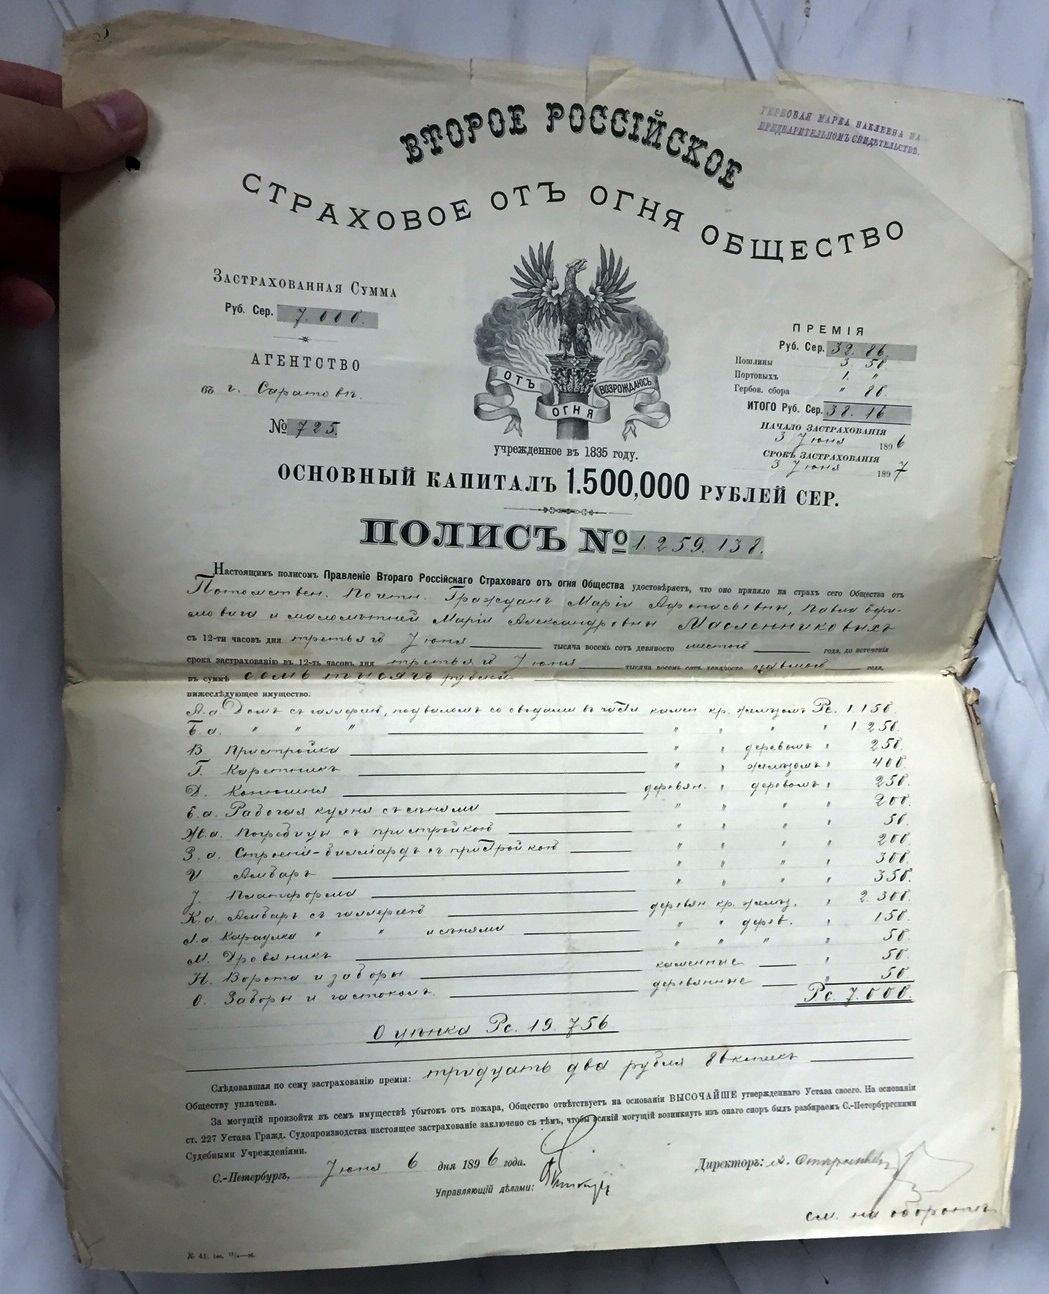 ВТОРОЕ РОССІЙСКОЕ
ГЕРБОВАЯ МАРКА НАКЛЕЕНА НА
ПРЕДВАРИТЕЛЬНОМЪ СВИДѢТЕЛЬСТВѢ.
СТРАХОВОЕ ОТЪ ОГНЯ ОБЩЕСТВО
ЗАСТРАХОВАННАЯ СУММА
Руб. Сер. 7.000.
АГЕНТСТВО
въ г. Саратовѣ.
№ 725.
ОТЪ ОГНЯ ВОЗРОЖДАЮСЬ
ПРЕМІЯ
Руб. Сер. 32.86.
Пошлины 3. 50
Портовыхъ 1. "
Гербов. сбора " 80.
ИТОГО Руб. Сер. 38.16
НАЧАЛО ЗАСТРАХОВАНІЯ
3 Іюня 1896
СРОКЪ ЗАСТРАХОВАНІЯ
3 Іюня 1897
учрежденное въ 1835 году.
ОСНОВНЫЙ КАПИТАЛЪ 1.500,000 РУБЛЕЙ СЕР.
ПОЛИСЪ № 1.259.138.
Настоящимъ полисомъ Правленіе Втораго Россійскаго Страховаго отъ огня Общества удостовѣряетъ, что оно приняло на страхъ сего Общества отъ
Потомствен. Почетн. Гражданъ Маріи Афанасьевны, Павла
и малолѣтней Маріи Александровны Масленниковыхъ
съ 12-ти часовъ дня третьяго Іюня тысяча восемь сотъ девяносто шестого года, до истеченія
срока застрахованію въ 12-ть часовъ дня третьяго Іюня тысяча восемь сотъ девяносто седьмого года,
въ суммѣ семь тысячъ рублей
нижеслѣдующее имущество:
А.а Домъ съ галлереею, подваломъ со сводами въ части камен кр. желѣзомъ Рс. 1.150.
Б.а. " " " " " " 1.250.
В. Пристройка " " деревомъ " 250.
Г. Каретникъ " " желѣзомъ " 400.
Д. Конюшня деревян. " деревомъ " 250.
Е.а. Рабочая кухня съ сѣнями " " " " 200.
Ж.а. Погребицы съ пристройкою " " " " 50.
З.а. Строеніе-билліардъ съ пристройкою " " " " 200.
И. Амбаръ " " " " 300.
J. Платформа " " " " 350.
К.а Амбаръ съ галлереею деревян кр. желѣз. " 2.300.
Л.а. Караулка " " и сѣнями " " дерев. " 150.
М. Дровяникъ " " " " 50.
Н. Ворота и заборы каменные " 50.
О. Заборы и частоколъ деревянные " 50.
Рс. 7.000.
Оцѣнка Рс. 19.756
Слѣдовавшая по сему застрахованію премія: тридцать два рубля 86 копѣекъ
Обществу уплачена.
За могущій произойти въ семъ имуществѣ убытокъ отъ пожара, Общество отвѣтствуетъ на основаніи ВЫСОЧАЙШЕ утвержденнаго Устава своего. На основаніи
ст. 227 Устава Гражд. Судопроизводства настоящее застрахованіе заключено съ тѣмъ, чтобы всякій могущій возникнуть изъ онаго споръ былъ разбираемъ С.-Петербургскими
Судебными Учрежденіями.
С.-Петербургъ, Іюня 6 дня 1896 года.
Директоръ:
Управляющій дѣлами:
см. на оборотѣ